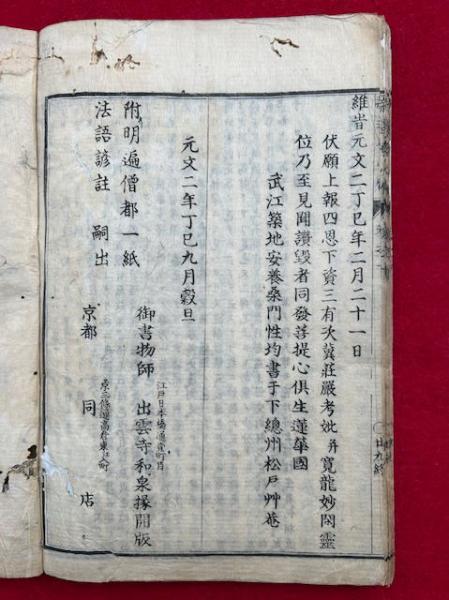 維旹元文二丁巳年二月二十一日
伏願上報四恩下資三有次冀莊嚴考妣并寬龍妙閑靈
位乃至見聞讚毀者同發菩提心俱生蓮華國
武江築地安養桑門性均書于下總州松戸艸菴
元文二年丁巳九月穀旦
附明遍僧都一紙
法語諺註 嗣出
江戸日本橋通壹町目
御書物師 出雲寺和泉掾開版
京都 同 店
廿九終